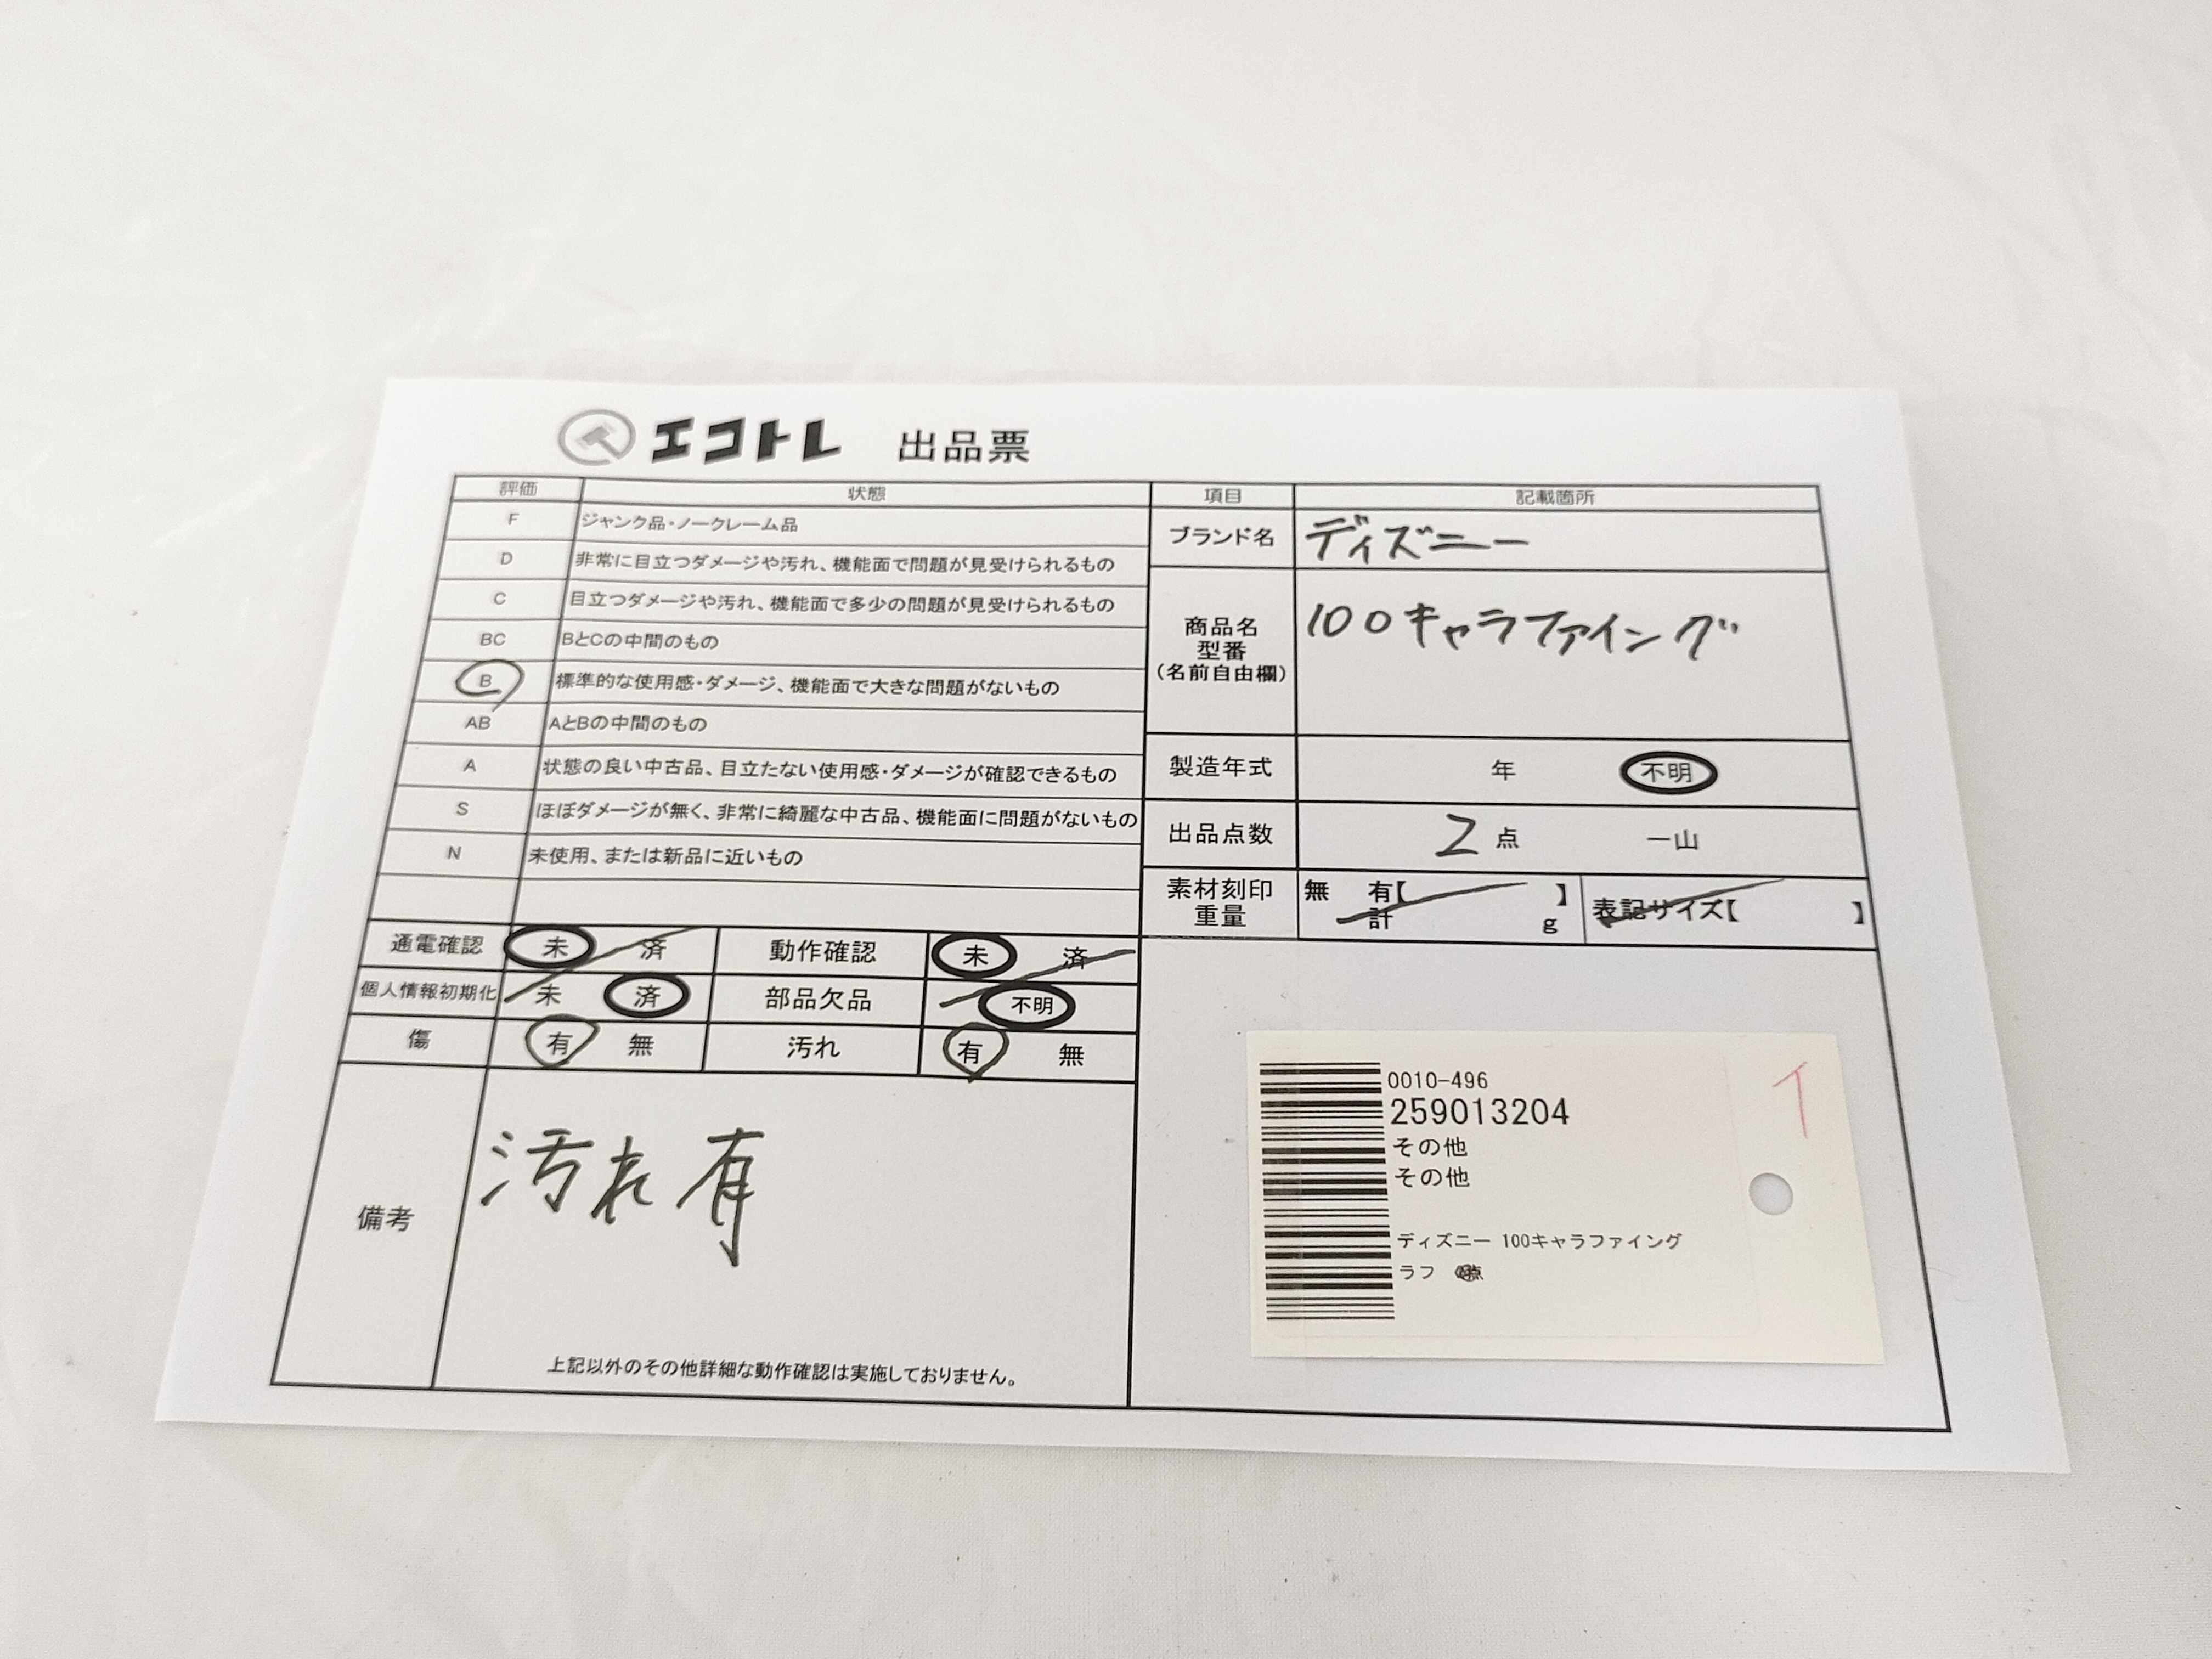 エコトレ 出品票
評価 状態
F ジャンク品・ノークレーム品
D 非常に目立つダメージや汚れ、機能面で問題が見受けられるもの
C 目立つダメージや汚れ、機能面で多少の問題が見受けられるもの
BC BとCの中間のもの
B 標準的な使用感・ダメージ、機能面で大きな問題がないもの
AB AとBの中間のもの
A 状態の良い中古品、目立たない使用感・ダメージが確認できるもの
S ほぼダメージが無く、非常に綺麗な中古品、機能面に問題がないもの
N 未使用、または新品に近いもの
通電確認 未 済 動作確認 未 済
個人情報初期化 未 済 部品欠品 不明
傷 有 無 汚れ 有 無
備考 汚れ有
上記以外のその他詳細な動作確認は実施しておりません。
項目 記載箇所
ブランド名 ディズニー
商品名
型番
(名前自由欄)
100キャラファイング
製造年式 年 不明
出品点数 2点 一山
素材刻印
重量
無 有【 】
計 g
表記サイズ【 】
0010-496
259013204
その他
その他
ディズニー 100キャラファイング
ラフ 点
1